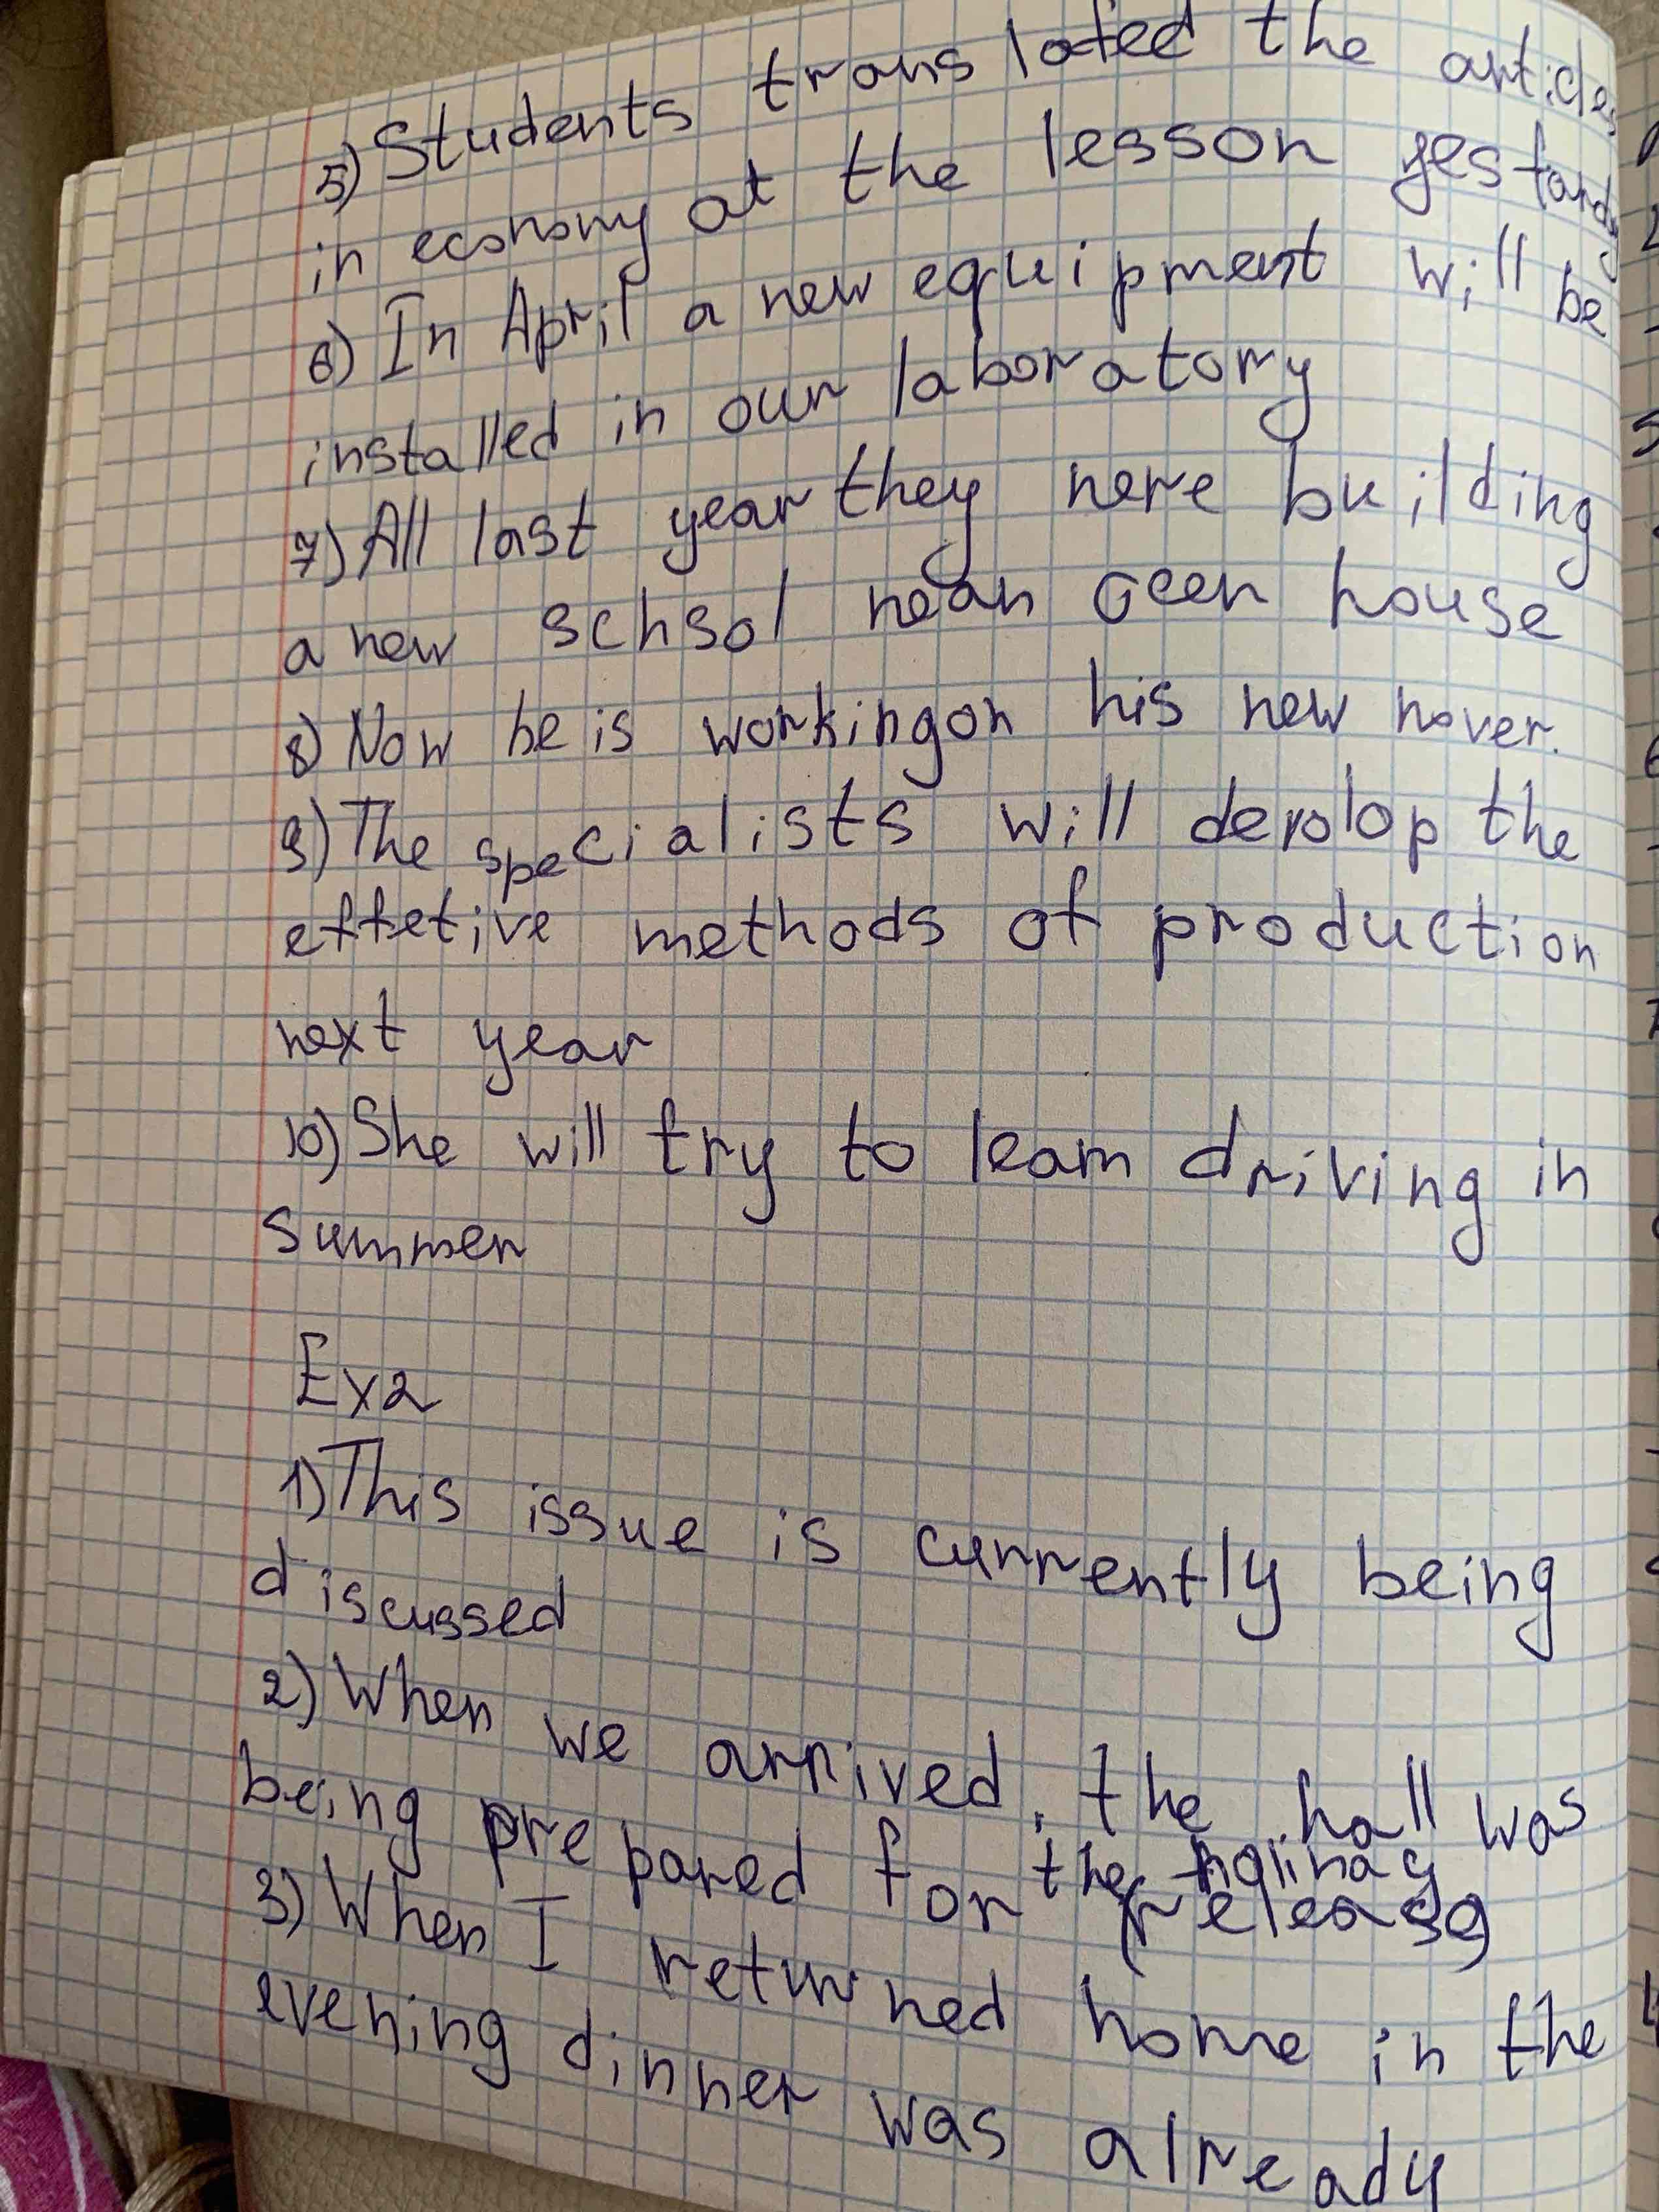 5) Students translated the articles
in economy at the lesson yestardy
6) In April a new equipment will be
installed in our laboratory
7) All last year they nere building
a new schsol near oeer house
8) Now he is workingon his new nover.
9) The specialists will derolop the
effetive methods of production
next year
10) She will try to learn driving in
summer
Ex2
1) This issue is currently being
discussed
2) When we arrived, the hall was
being prepared for the
(release
3) When I returned home in the
evening dinner was already